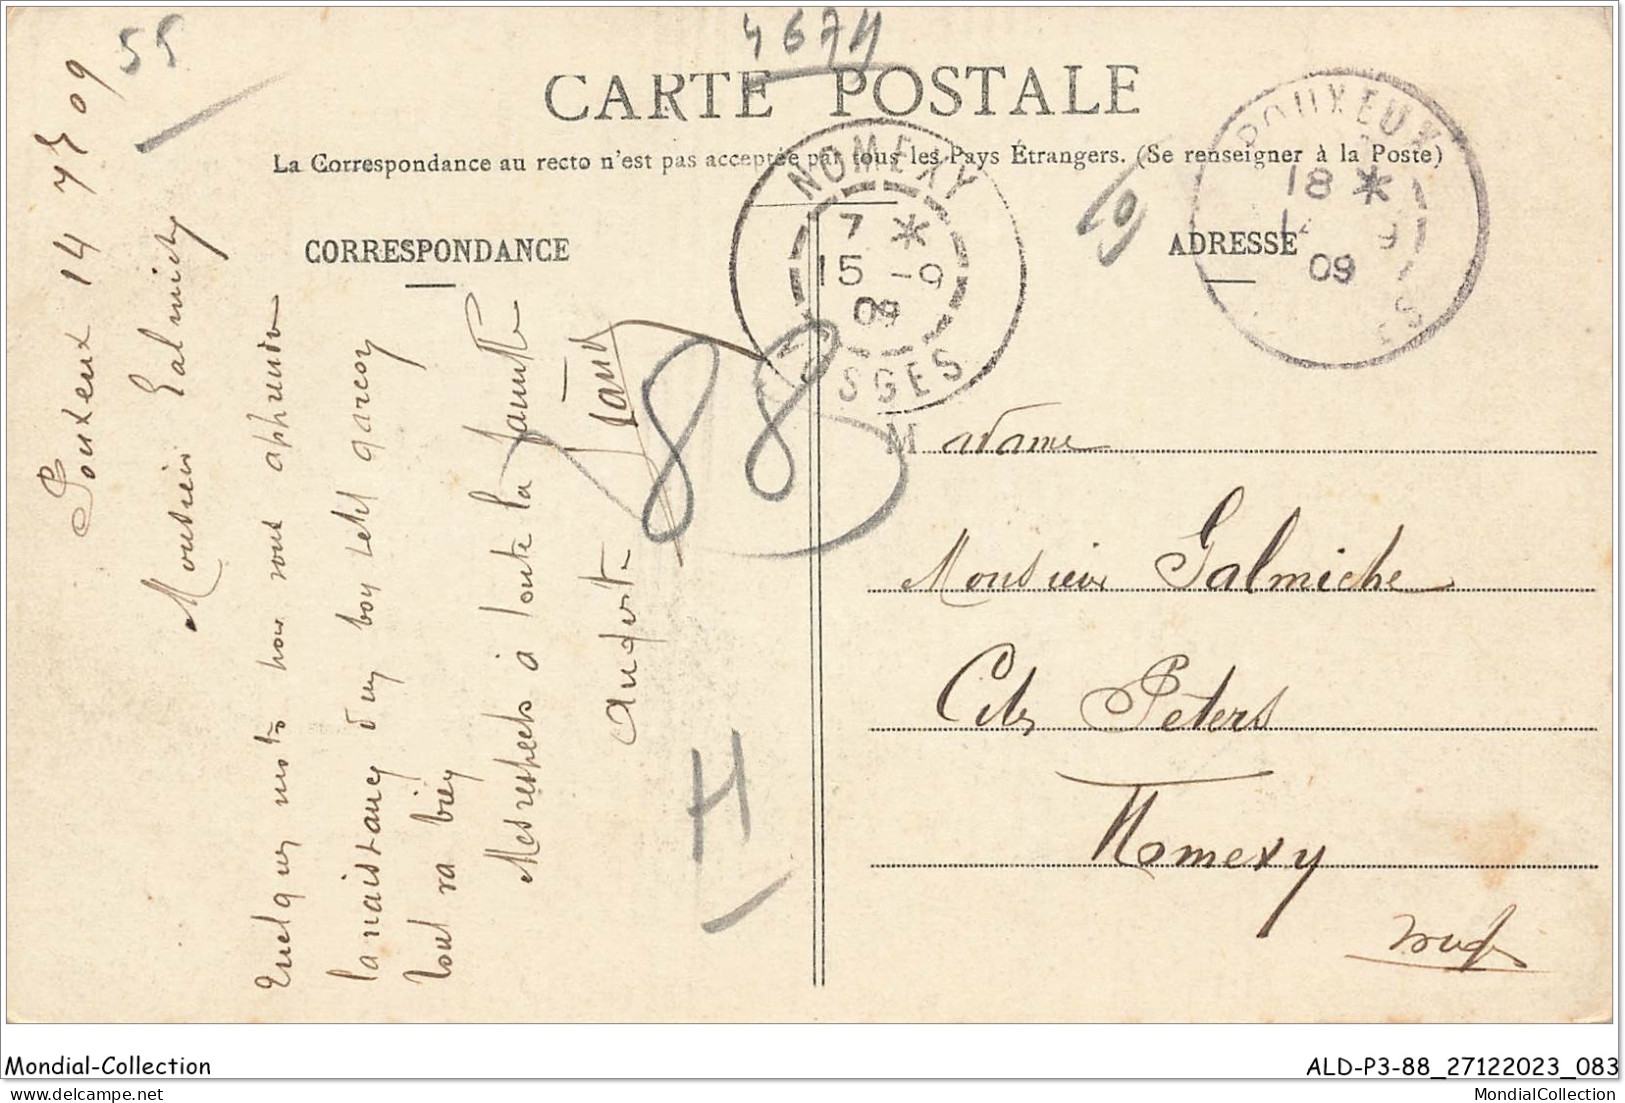 55
4674
CARTE POSTALE
La Correspondance au recto n'est pas acceptée par tous les Pays Étrangers. (Se renseigner à la Poste)
CORRESPONDANCE
ADRESSE
NOMEXY
7 *
15 -9
09
VOSGES
POUXEUX
18 *
14 9
09
ES
19
Pouxeux 14 7e 09
Monsieur Galmiche
Quelques mots pour vous apprendre
la naissance d'un bon petit garçon
tout va bien
Mes respects à toute la famille
88
H
M adame
Monsieur Galmiche
Cité Peters
Nomexy
Mondial-Collection
ALD-P3-88_27122023_083
MondialCollection